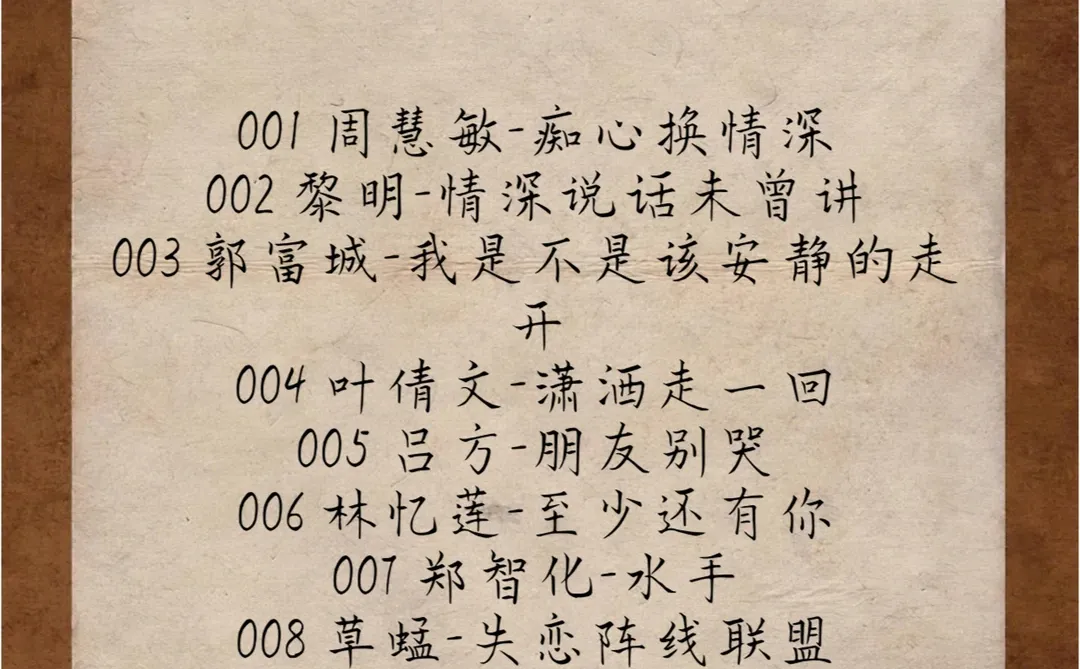 001 周慧敏-痴心换情深
002 黎明-情深说话未曾讲
003 郭富城-我是不是该安静的走
开
004 叶倩文-潇洒走一回
005 吕方-朋友别哭
006 林忆莲-至少还有你
007 郑智化-水手
008 草蜢-失恋阵线联盟